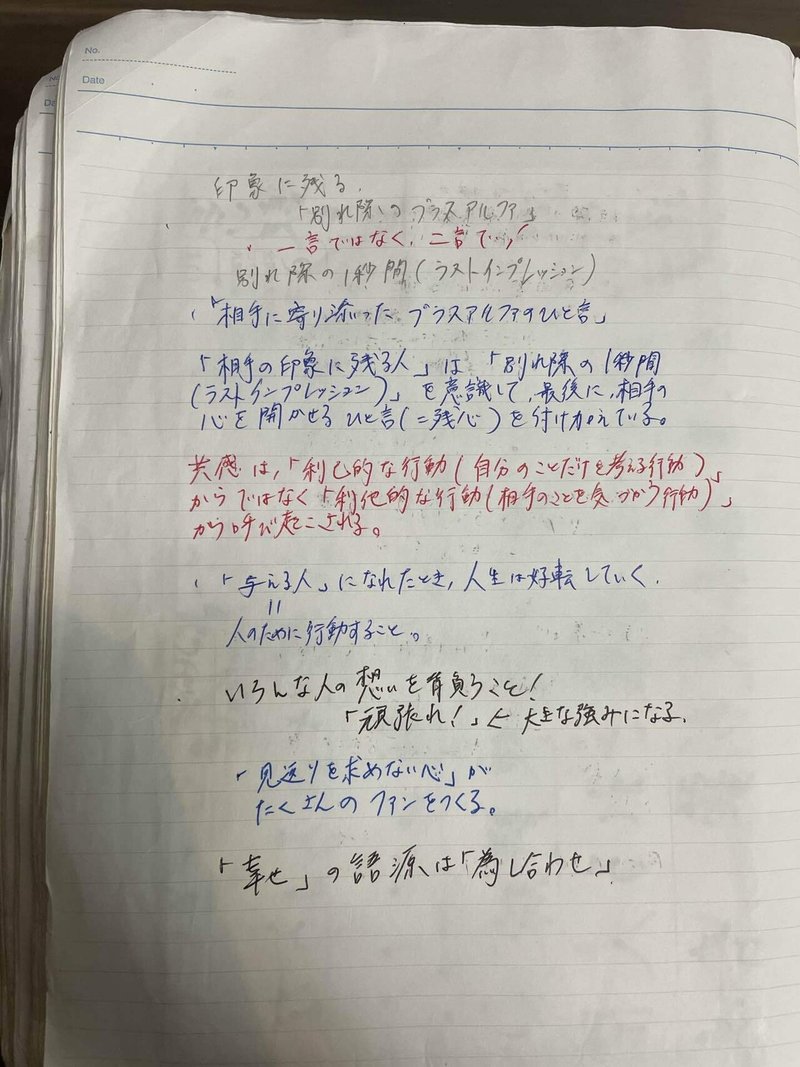 No.
Date
印象に残る.
「別れ際」のプラスアルファ」
・一言ではなく、二言で!
別れ際の1秒間(ラストインプレッション)
・「相手に寄り添ったプラスアルファのひと言」
「相手の印象に残る人」は「別れ際の1秒間
(ラストインプレッション)」を意識して、最後に、相手の
心を開かせるひと言(=残心)を付け加えている。
共感は、「利己的な行動(自分のことだけを考える行動)」
からではなく「利他的な行動(相手のことを気づかう行動)」
から呼び起こされる。
・「与える人」になれたとき、人生は好転していく.
=
人のために行動すること。
・いろんな人の想いを背負うこと!
「頑張れ!」← 大きな強みになる.
「見送りを求めない心」が
たくさんのファンをつくる。
「幸せ」の語源は「為し合わせ」